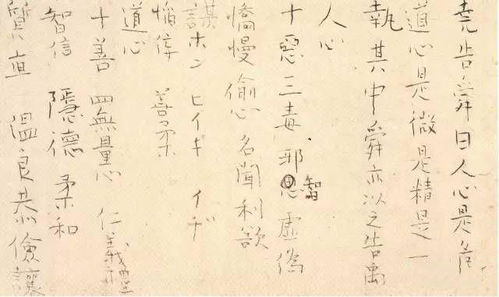 堯告舜曰人心是危
道心是微是精是一
執其中舜亦以之告禹
人心
十惡三毒 邪智 虚偽
憍慢偸心名聞利欲
謀ホン ヒイギ イヂ
倖 善柔
道心
十善 四無量心 仁義禮
智信 隱德 柔和
質直 温良恭儉讓